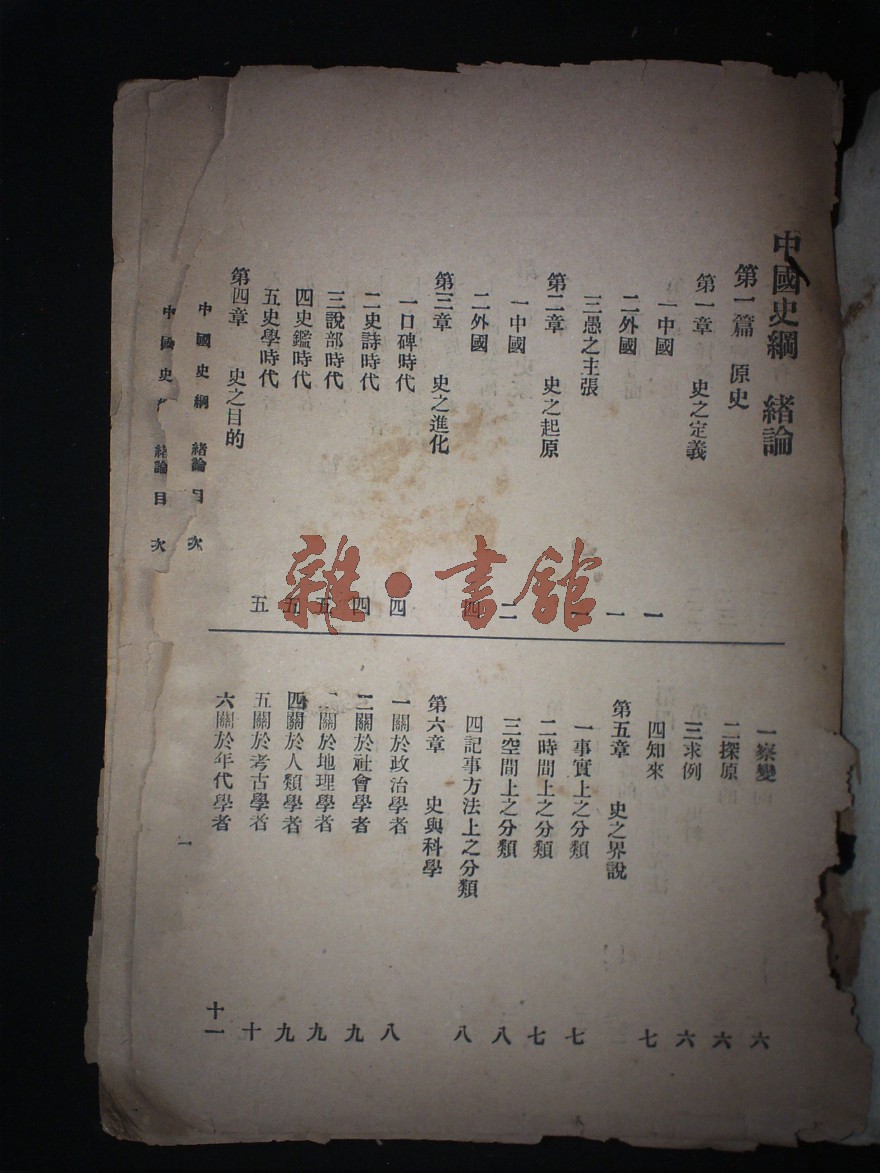 中國史綱 緒論
第一篇 原史
第一章 史之定義
一中國 一
二外國 一
三愚之主張 一
第二章 史之起原
一中國 二
二外國 四
第三章 史之進化
一口碑時代 四
二史詩時代 四
三說部時代 五
四史鑑時代 五
五史學時代 五
第四章 史之目的
一察變 六
二探原 六
三求例 六
四知來 七
第五章 史之界說
一事實上之分類 七
二時間上之分類 七
三空間上之分類 八
四記事方法上之分類 八
第六章 史與科學
一關於政治學者 八
二關於社會學者 九
關於地理學者 九
四關於人類學者 九
五關於考古學者 十
六關於年代學者 十一
中國史綱 緒論目次
一
中國史 緒論目次
雜·書館